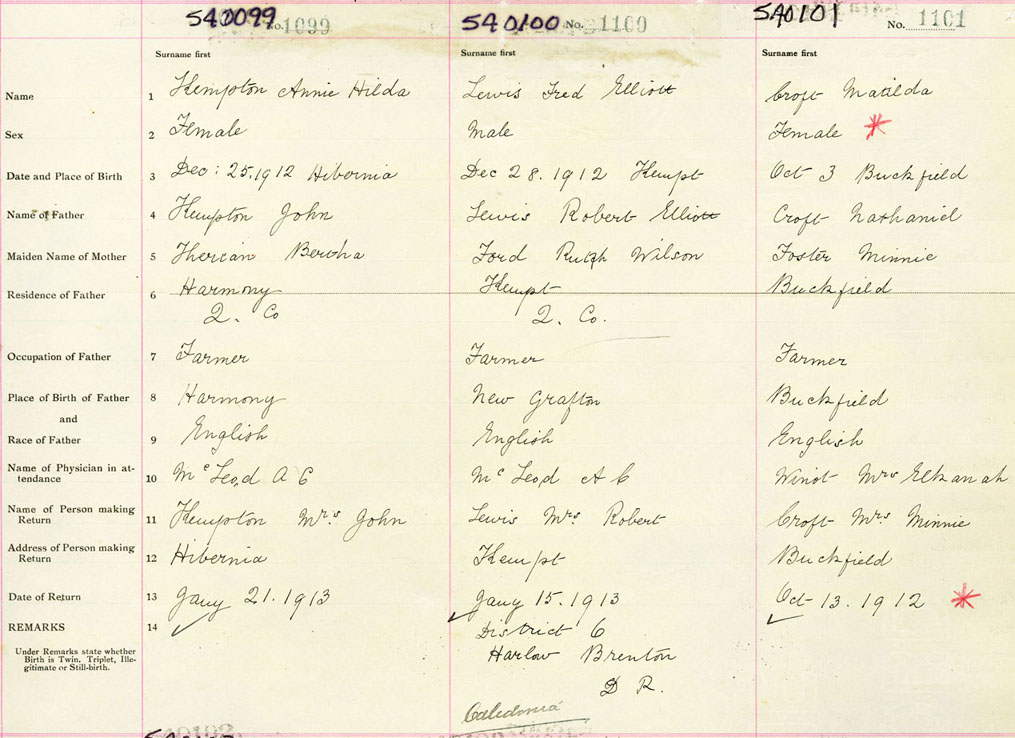 540099 No. 1099 540100 No. 1100 540101 No. 1101
Surname first Surname first Surname first
Name 1 Kempton Annie Hilda Lewis Fred Elliott Croft Matilda
Sex 2 Female Male Female *
Date and Place of Birth 3 Dec: 25.1912 Hibernia Dec 28.1912 Kempt Oct 3 Buckfield
Name of Father 4 Kempton John Lewis Robert Elliott Croft Nathaniel
Maiden Name of Mother 5 Bertha Ford Ruth Wilson Foster Minnie
Residence of Father 6 Harmony Kempt Buckfield
Q. Co Q. Co.
Occupation of Father 7 Farmer Farmer Farmer
Place of Birth of Father 8 Harmony New Grafton Buckfield
and
Race of Father 9 English English English
Name of Physician in at-
tendance 10 Mc Leod A C Mc Leod A C Winot Mrs Elkanah
Name of Person making
Return 11 Kempton Mrs John Lewis Mrs Robert Croft Mrs Minnie
Address of Person making
Return 12 Hibernia Kempt Buckfield
Date of Return 13 Jany 21.1913 Jany 15.1913 Oct 13.1912 *
REMARKS 14 ✓ ✓ District 6 ✓
Under Remarks state whether
Birth is Twin, Triplet, Ille-
gitimate or Still-birth.
Harlow Brenton
D R.
Caledonia